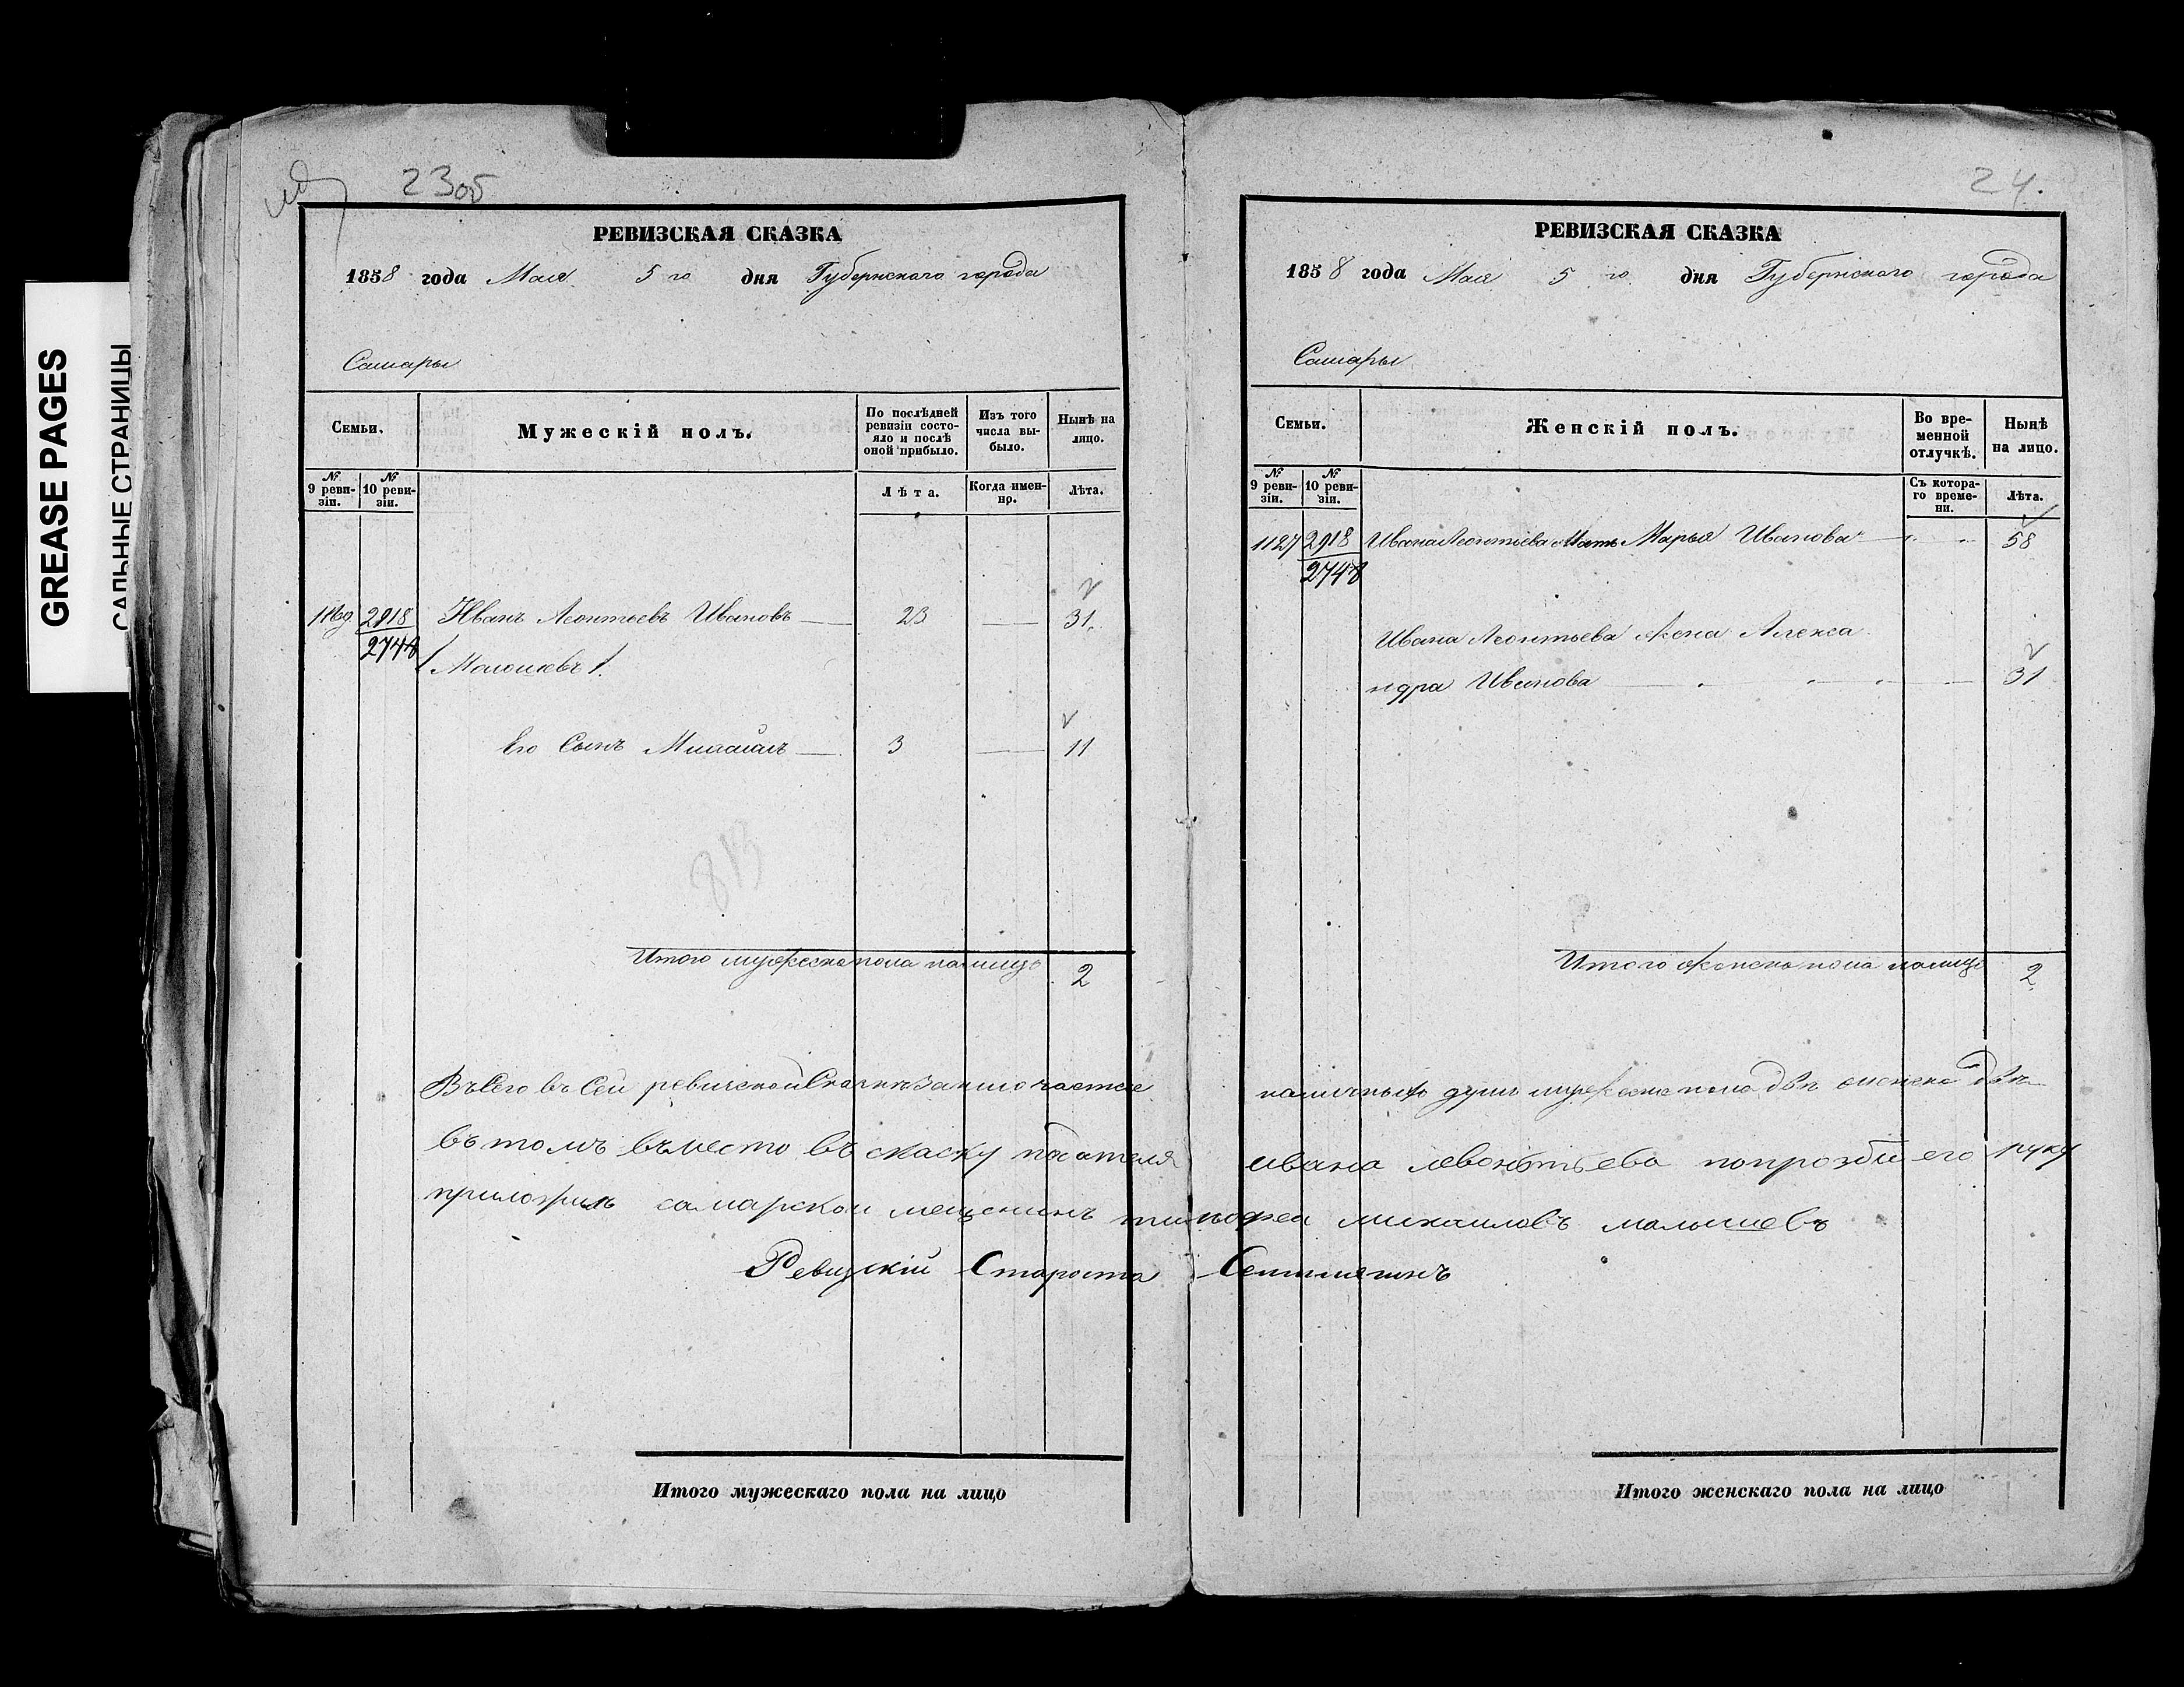 GREASE PAGES
САЛЬНЫЕ СТРАНИЦЫ
23об
РЕВИЗСКАЯ СКАЗКА
1858 года Мая 5го дня Губернского города
Самары
Семьи.
Мужескій полъ.
По послѣдней ревизіи состояло и послѣ оной прибыло.
Изъ того числа выбыло.
Нынѣ на лицо.
№ 9 ревизіи.
№ 10 ревизіи.
Лѣта.
Когда именно.
Лѣта.
2918 Иванъ Леонтьевъ Ивановъ 23 31
2748
Его Сынъ Михаилъ 3 11
813
Итого мужеска пола налицо 2
Въсего въ Сей ревиской Скаске заключается
въ томъ въместо въ скаску подателя
приложилъ самарскои мещенинъ тимофеи
Ревизскій Староста
Итого мужескаго пола на лицо
24.
РЕВИЗСКАЯ СКАЗКА
1858 года Мая 5го дня Губернского города
Самары
Семьи.
Женскій полъ.
Во временной отлучкѣ.
Нынѣ на лицо.
№ 9 ревизіи.
№ 10 ревизіи.
Съ котораго времени.
Лѣта.
1127 2918 Ивана Леонтьева Мать Марья Иванова 58
2748
Ивана Леонтьева Жена Алекса
ндра Иванова 31
Итого женска пола налицо 2
наличныхъ душъ мужеска пола двѣ женска двѣ
ивана левонтьева попрозби его руку
михаиловъ малышевъ
Итого женскаго пола на лицо